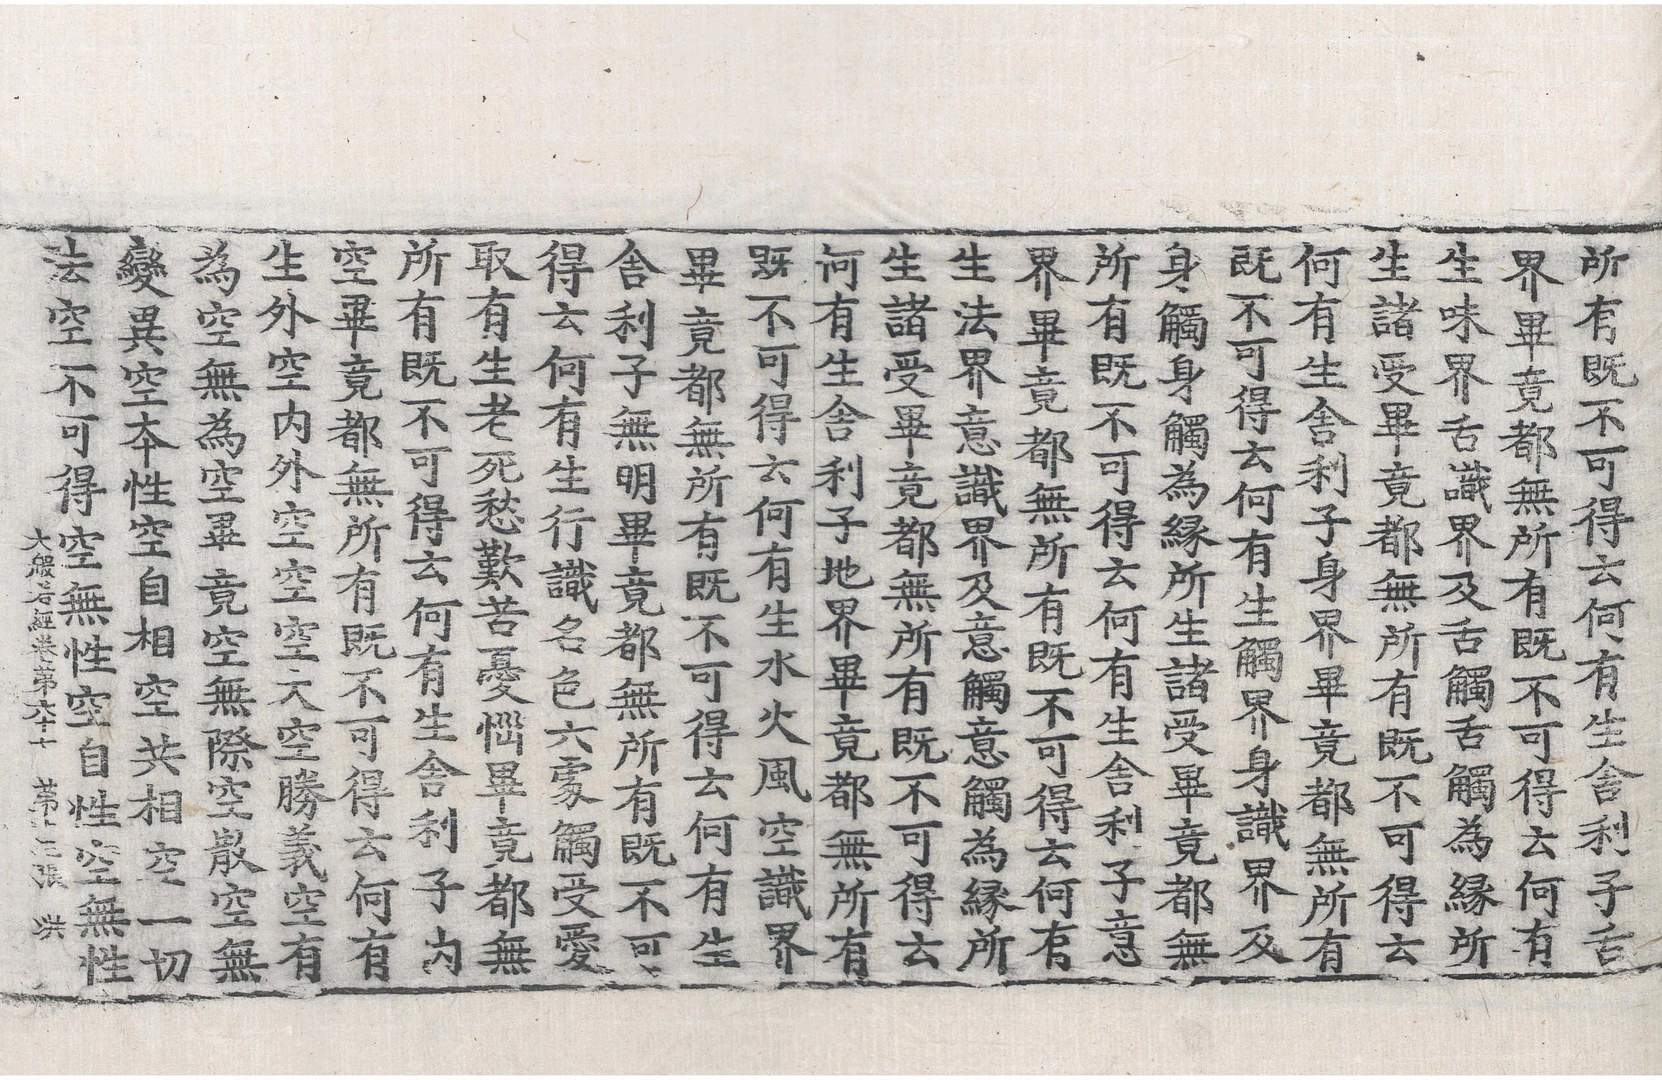 所有既不可得云何有生舍利子舌
界畢竟都無所有既不可得云何有
生味界舌識界及舌觸舌觸為緣所
生諸受畢竟都無所有既不可得云
何有生舍利子身界畢竟都無所有
既不可得云何有生觸界身識界及
身觸身觸為緣所生諸受畢竟都無
所有既不可得云何有生舍利子意
界畢竟都無所有既不可得云何有
生法界意識界及意觸意觸為緣所
生諸受畢竟都無所有既不可得云
何有生舍利子地界畢竟都無所有
既不可得云何有生水火風空識界
畢竟都無所有既不可得云何有生
舍利子無明畢竟都無所有既不可
得云何有生行識名色六處觸受愛
取有生老死愁歎苦憂惱畢竟都無
所有既不可得云何有生舍利子内
空畢竟都無所有既不可得云何有
生外空内外空空空大空勝義空有
為空無為空畢竟空無際空散空無
變異空本性空自相空共相空一切
法空不可得空無性空自性空無性
大般若經卷第六十七 第張 洪